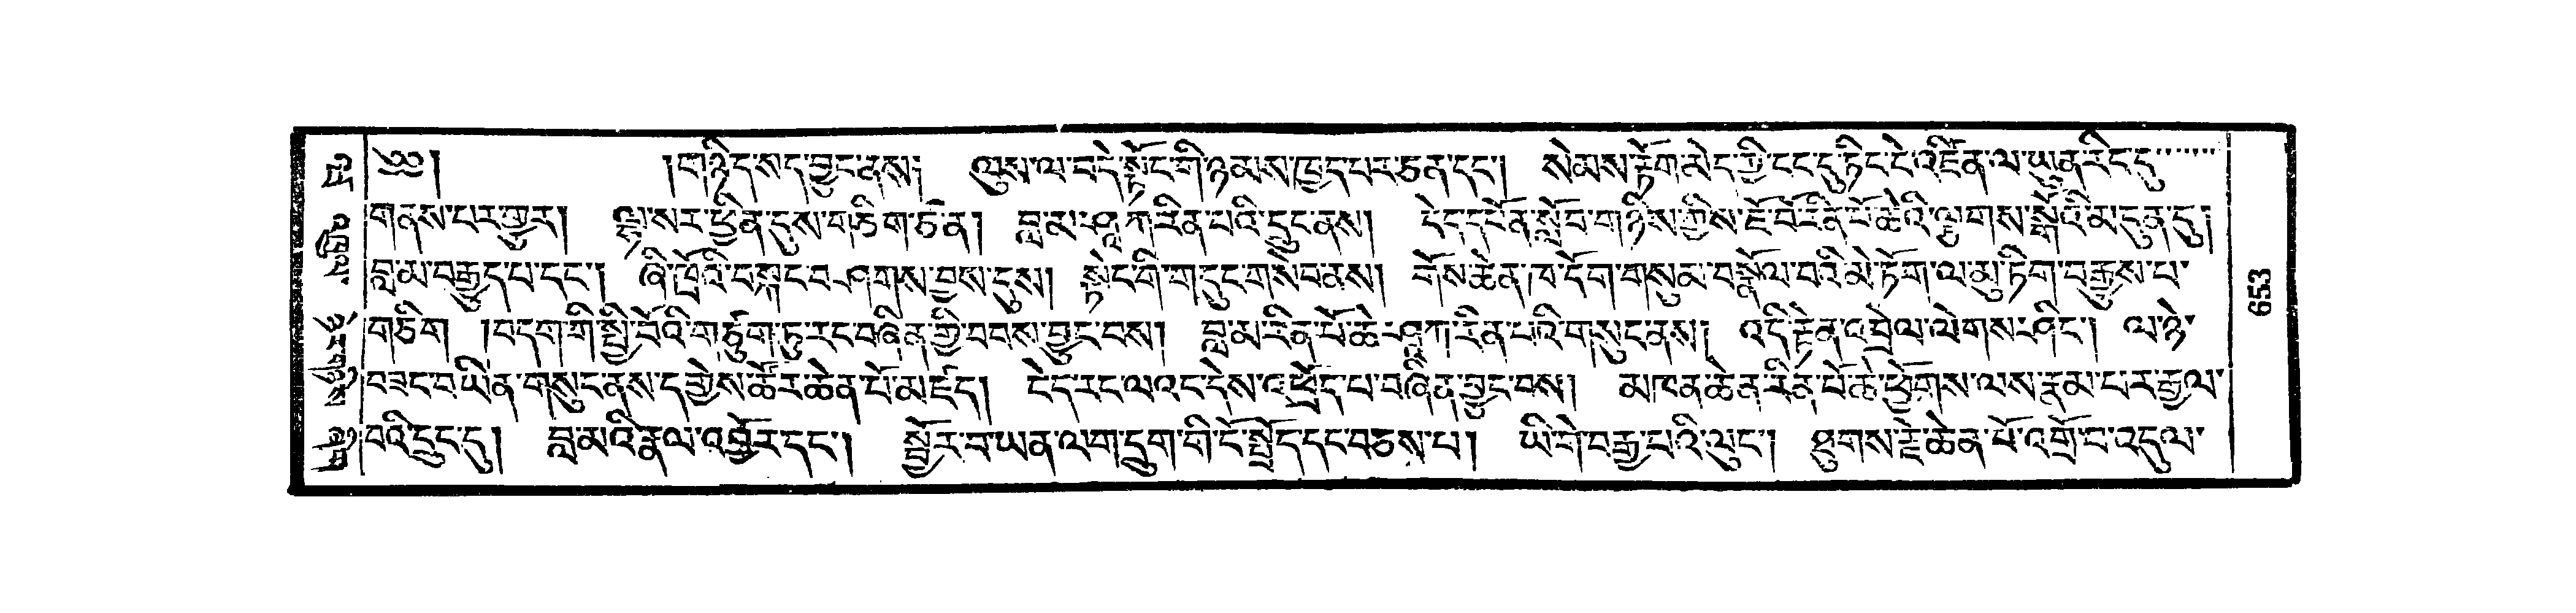 ༄༅། །གཉིད་སད་བྱུང་ནས། ལུས་ལ་བདེ་སྟོང་གི་ཉམས་ཁྱད་པར་ཅན་དང་། སེམས་རྟོག་མེད་ཀྱི་ངང་དུ་ཏིང་ངེ་འཛིན་ལ་ཡུན་རིང་དུ
གནས་པར་གྱུར། ལྷ་སར་ཕྱིན་དུས་གཅིག་ཅན། བླ་མ་ཤཱཀ་རིན་པའི་དྲུང་ནས། ངེད་དཔོན་སློབ་གཉིས་ཀྱིས་ཇོ་བོ་རིན་པོ་ཆེའི་ལྕགས་སྒོའི་མདུན་དུ།
བླ་མ་བརྒྱུད་པ་དང་། ཞི་ཁྲོའི་བསྐང་བཤགས་བྱས་དུས། སྟེང་གི་གདུང་གསེབ་ནས། གོས་ཆེན་ཁ་དོག་གསུམ་བསྣོལ་བའི་མེ་ཏོག་ལ་མུ་ཏིག་བརྒྱུས་པ་
གཅིག །བདག་གི་སྤྱི་བོའི་གཙུག་ཏུ་རང་བཞིན་གྱི་བབས་བྱུང་བས། བླ་མ་རིན་པོ་ཆེ་ཤཱཀ་རིན་པའི་གསུང་ནས། འདི་རྟེན་འབྲེལ་ལེགས་ཤིང་། ལ་ཉེ་
བཟང་བ་ཡིན་གསུང་ནས་དགྱེས་ཚོར་ཆེན་པོ་མཛད། ངེད་རང་ལའང་དེས་འཕྲོད་པ་བཞིན་བྱུང་བས། མཁན་ཆེན་རིན་པོ་ཆེ་ཕྱོགས་ལས་རྣམ་པར་རྒྱལ་
བའི་དྲུང་དུ། བླ་མའི་རྣལ་འབྱོར་དང་། སྦྱོར་བ་ཡན་ལག་དྲུག་གི་ངོ་སྤྲོད་དང་བཅས་པ། ཡི་གེ་བརྒྱ་པའི་ལུང་། ཐུགས་རྗེ་ཆེན་པོ་འགྲོ་བ་འདུལ་
653